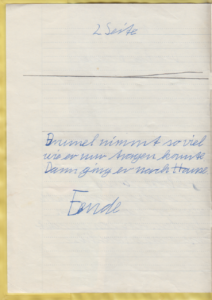 2 Seite
Brumel nimmt so viel
wie er nur tragen konnte
Dann ging er nach Hause
Ende